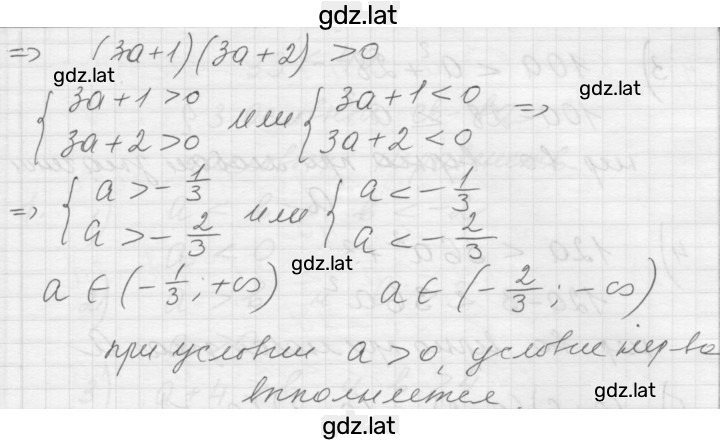 gdz.lat
=> (3a+1)(3a+2) >0
gdz.lat
{ 3a+1 >0 или { 3a+1 <0 =>
gdz.lat
3a+2 >0 3a+2 <0
=> { a > -1/3 или { a < -1/3
a > -2/3 a < -2/3
gdz.lat
a ∈ (-1/3; +∞) a ∈ (-2/3; -∞)
при условии a >0, условие
выполняется
gdz.lat
gdz.lat